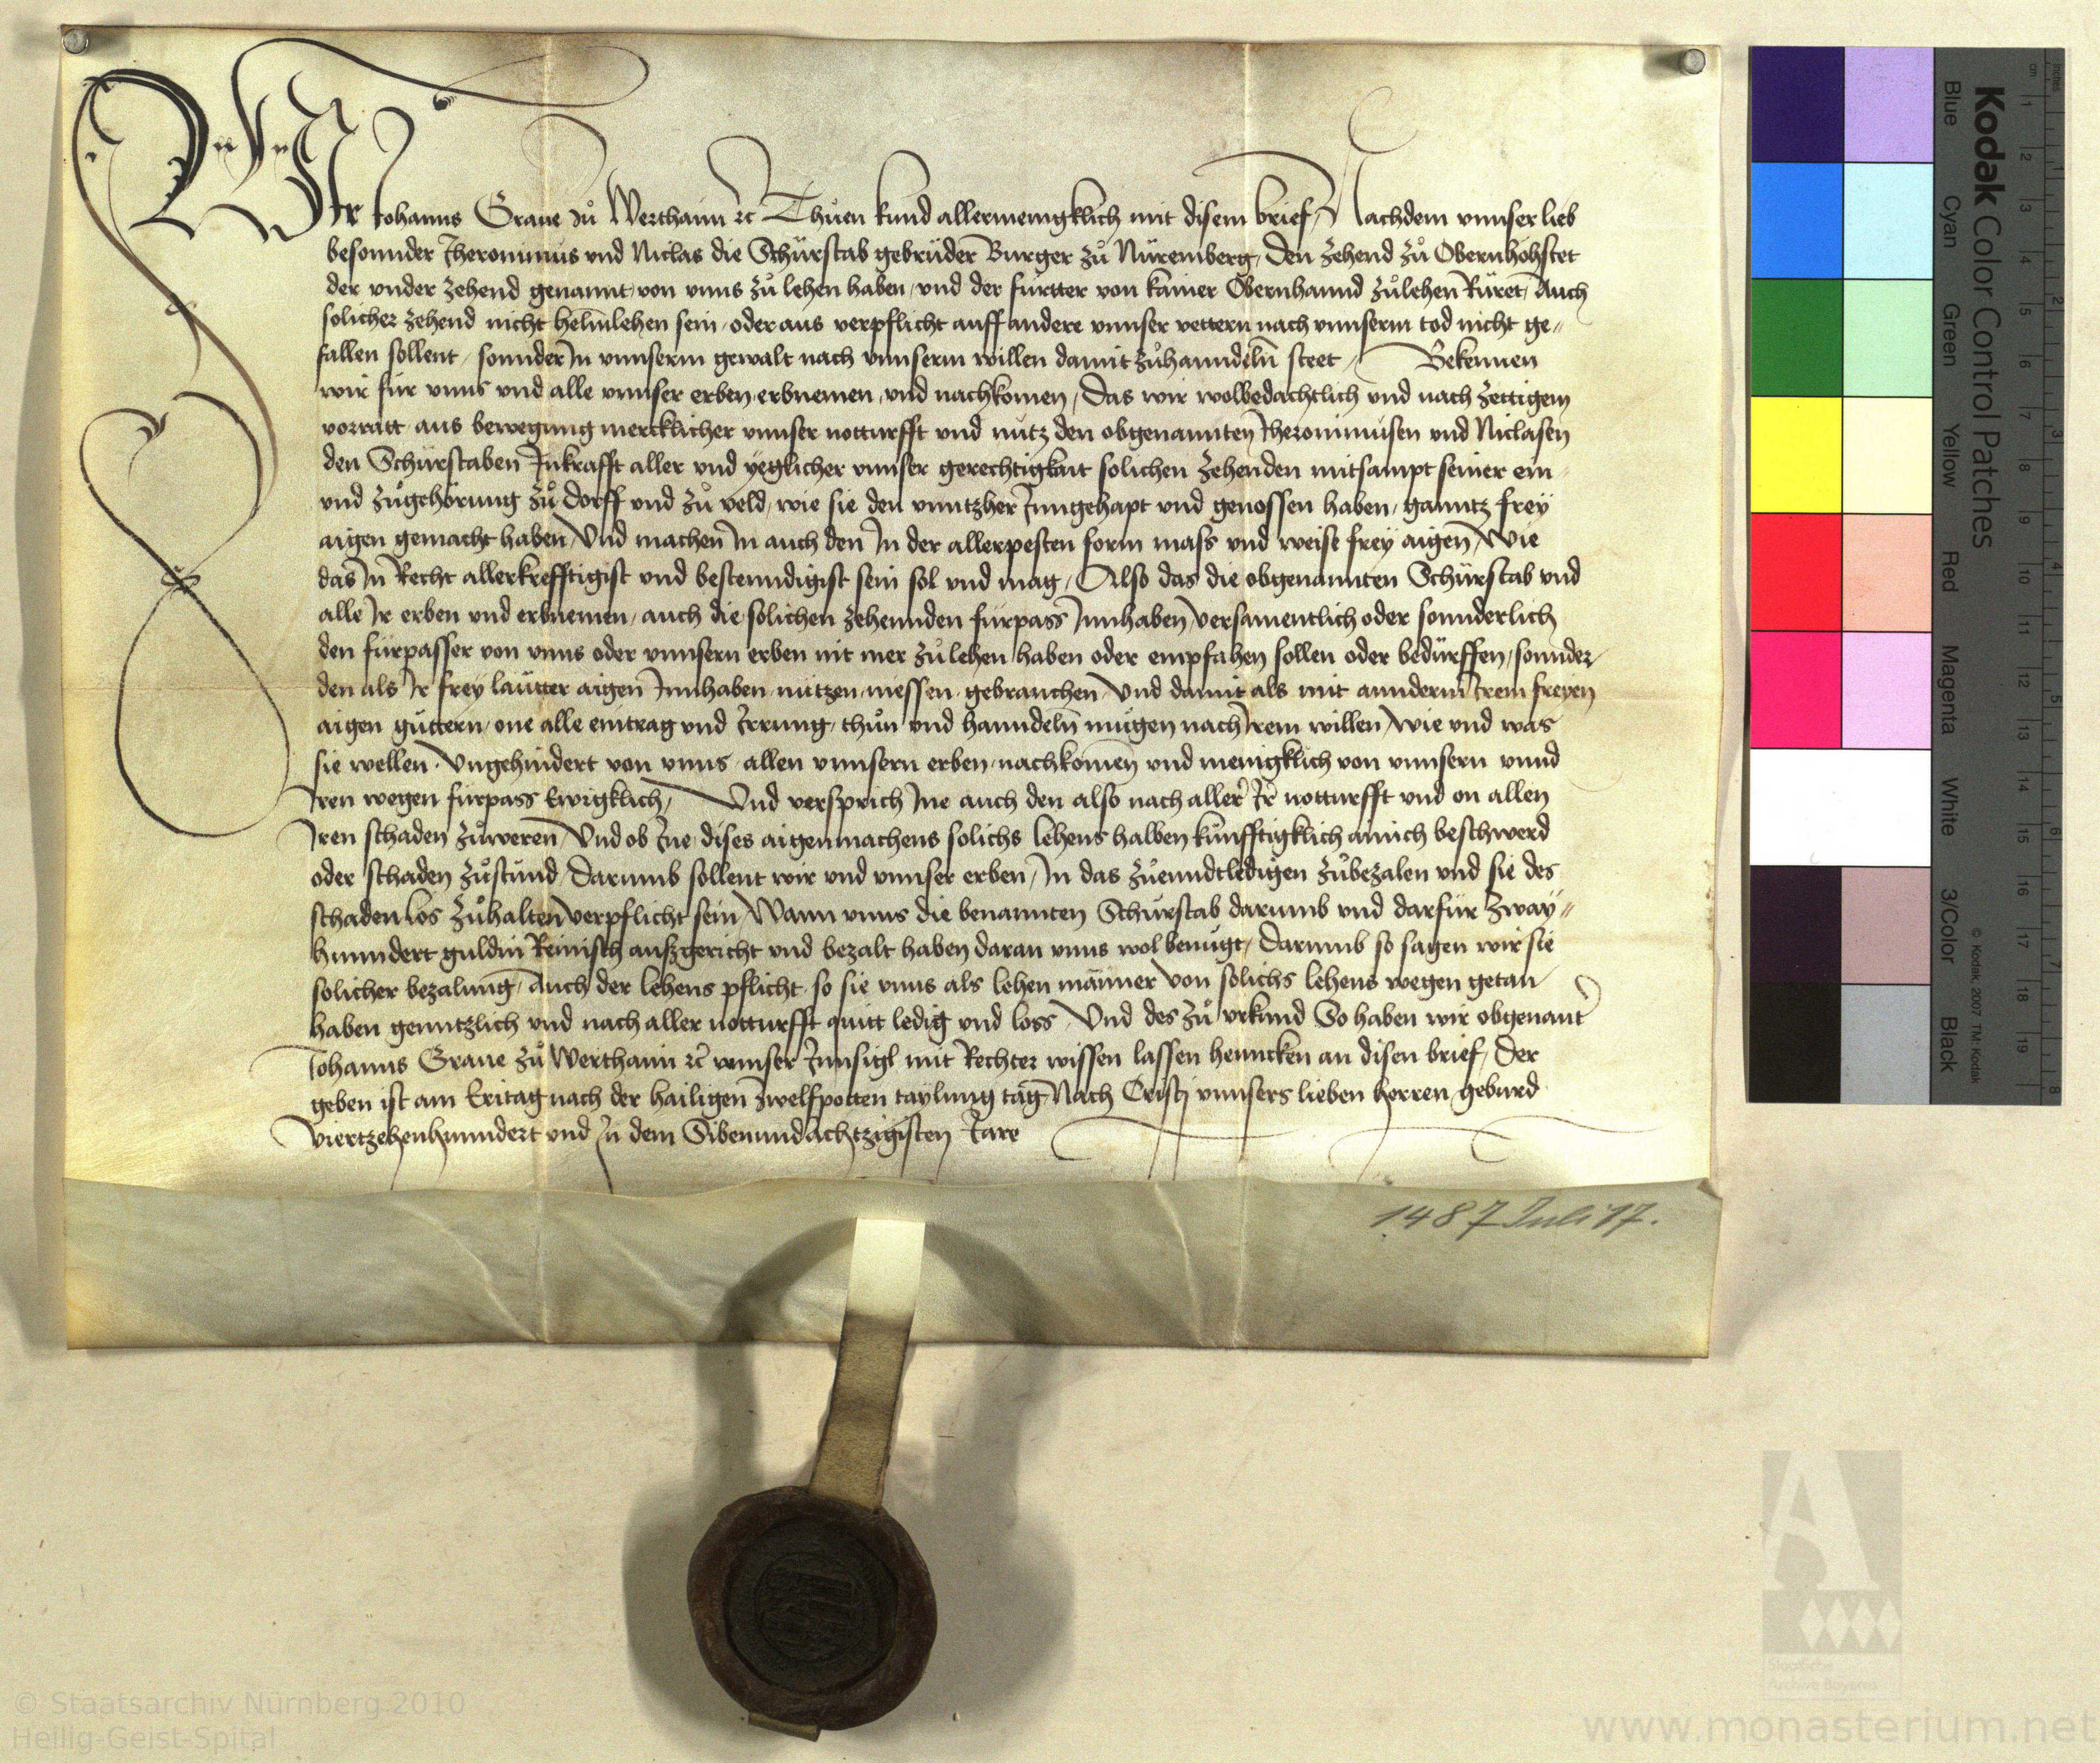 Wir Johanns Graue zů Werthaim ꝛc Thůen kund allermenigklich mit disem brief, Nachdem vnnser lieb
besonnder Jheronimus vnd Niclas die Schürstab gebrüder Burger zů Nüremberg, Den Zehend zů Obernhöhstet
der vnder zehend genannt von vnns zů lehen haben, vnd der fürtter von kainer Obernhannd zůlehen Rüret, Auch
solicher zehend nicht helmlehen sein, oder aus verpflicht auff andere vnnser vettern nach vnnserm tod nicht ge„
fallen sollent, sonnder In vnnserm gewalt nach vnnserm willen damit zůhanndeln̄ steet, Bekennen
wir für vnns vnd alle vnnser erben erbnemen, vnd nachkomen, Das wir wolbedachtlich vnd nach zeitigem
vorratt aus bewegung mercklicher vnnser notturfft vnd nutz den obgenannten Jheronimusen vnd Niclasen
den Schürstaben Inkrafft aller vnd yeglicher vnnser gerechtigkait solichen zehenden mitsampt seiner ein
vnd zůgehörung zů dorff vnd zů veld, wie sie den vnntzher Inngehapt vnd genossen haben, ganntz frey
aigen gemacht haben, Vnd machen In auch den In der allerpesten form mass vnd weise frey aigen, Wie
das In Recht allerkrefftigist vnd bestenndigist sein sol vnd mag, Also das die obgenannten Schürstab vnd
alle Ir erben vnd erbnemen, auch die solichen zehennden fürpass Innhaben, versamentlich oder sonnderlich
den fürpasser von vnns oder vnnsern erben nit mer zů lehen haben oder empfahen sollen oder bedürffen, sonnder
den als Ir frey lautter aigen Innhaben nutzen niessen gebrauchen Vnd damit als mit annderm Irem freyen
aigen guttern, one alle eintrag vnd Irrung, thůn vnd hanndeln̄ mügen nach Irem willen, wie vnd was
sie wellen. Vngehindert von vnns allen vnnsern erben nachkomen̄ vnd menigklich von vnnsern vnnd
Iren wegen fürpass Ewigklich, Vnd versprich Ine auch den also nach aller Ir notturfft vnd on allen
Iren schaden zůweren, Vnd ob Ine dises aigenmachens solichs lehens halben künfftigklich ainich beschwerd
oder schaden zůstünd, Darumb sollent wir vnd vnnser erben, In das zůenndtledigen zůbezalen vnd sie des
schaden los zůhalten verpflicht sein, Wann vnns die benannten Schürstab darumb vnd darfür Zway„
hunndert guldin Reinisch außgericht vnd bezalt haben daran vnns wol benügt, Darumb so sagen wir sie
solicher bezalung, Auch der lehens pflicht so sie vnns als lehen männer von solichs lehens wegen getan
haben genntzlich vnd nach aller notturfft quitt ledig vnd loss, Vnd des zů vrkund So haben wir obgenant
Johanns Graue zů Werthaim ꝛc vnnser Innsigl mit Rechter wissen lassen henncken an disen brief, Der
geben ist am Eritag nach der hailigen zwelfpotten taylung tag Nach Cristi vnnsers lieben herren geburd
Viertzehenhunndert vnd In dem Sibenundachtzigisten Jare
1487 Juli 17.
Kodak Color Control Patches
Blue Cyan Green Yellow Red Magenta White 3/Color Black
© Kodak, 2007. TM: Kodak
cm 1 2 3 4 5 6 7 8 9 10 11 12 13 14 15 16 17 18 19
inches 1 2 3 4 5 6 7 8
Staatliche
Archive Bayerns
© Staatsarchiv Nürnberg 2010
Heilig-Geist-Spital
www.monasterium.net